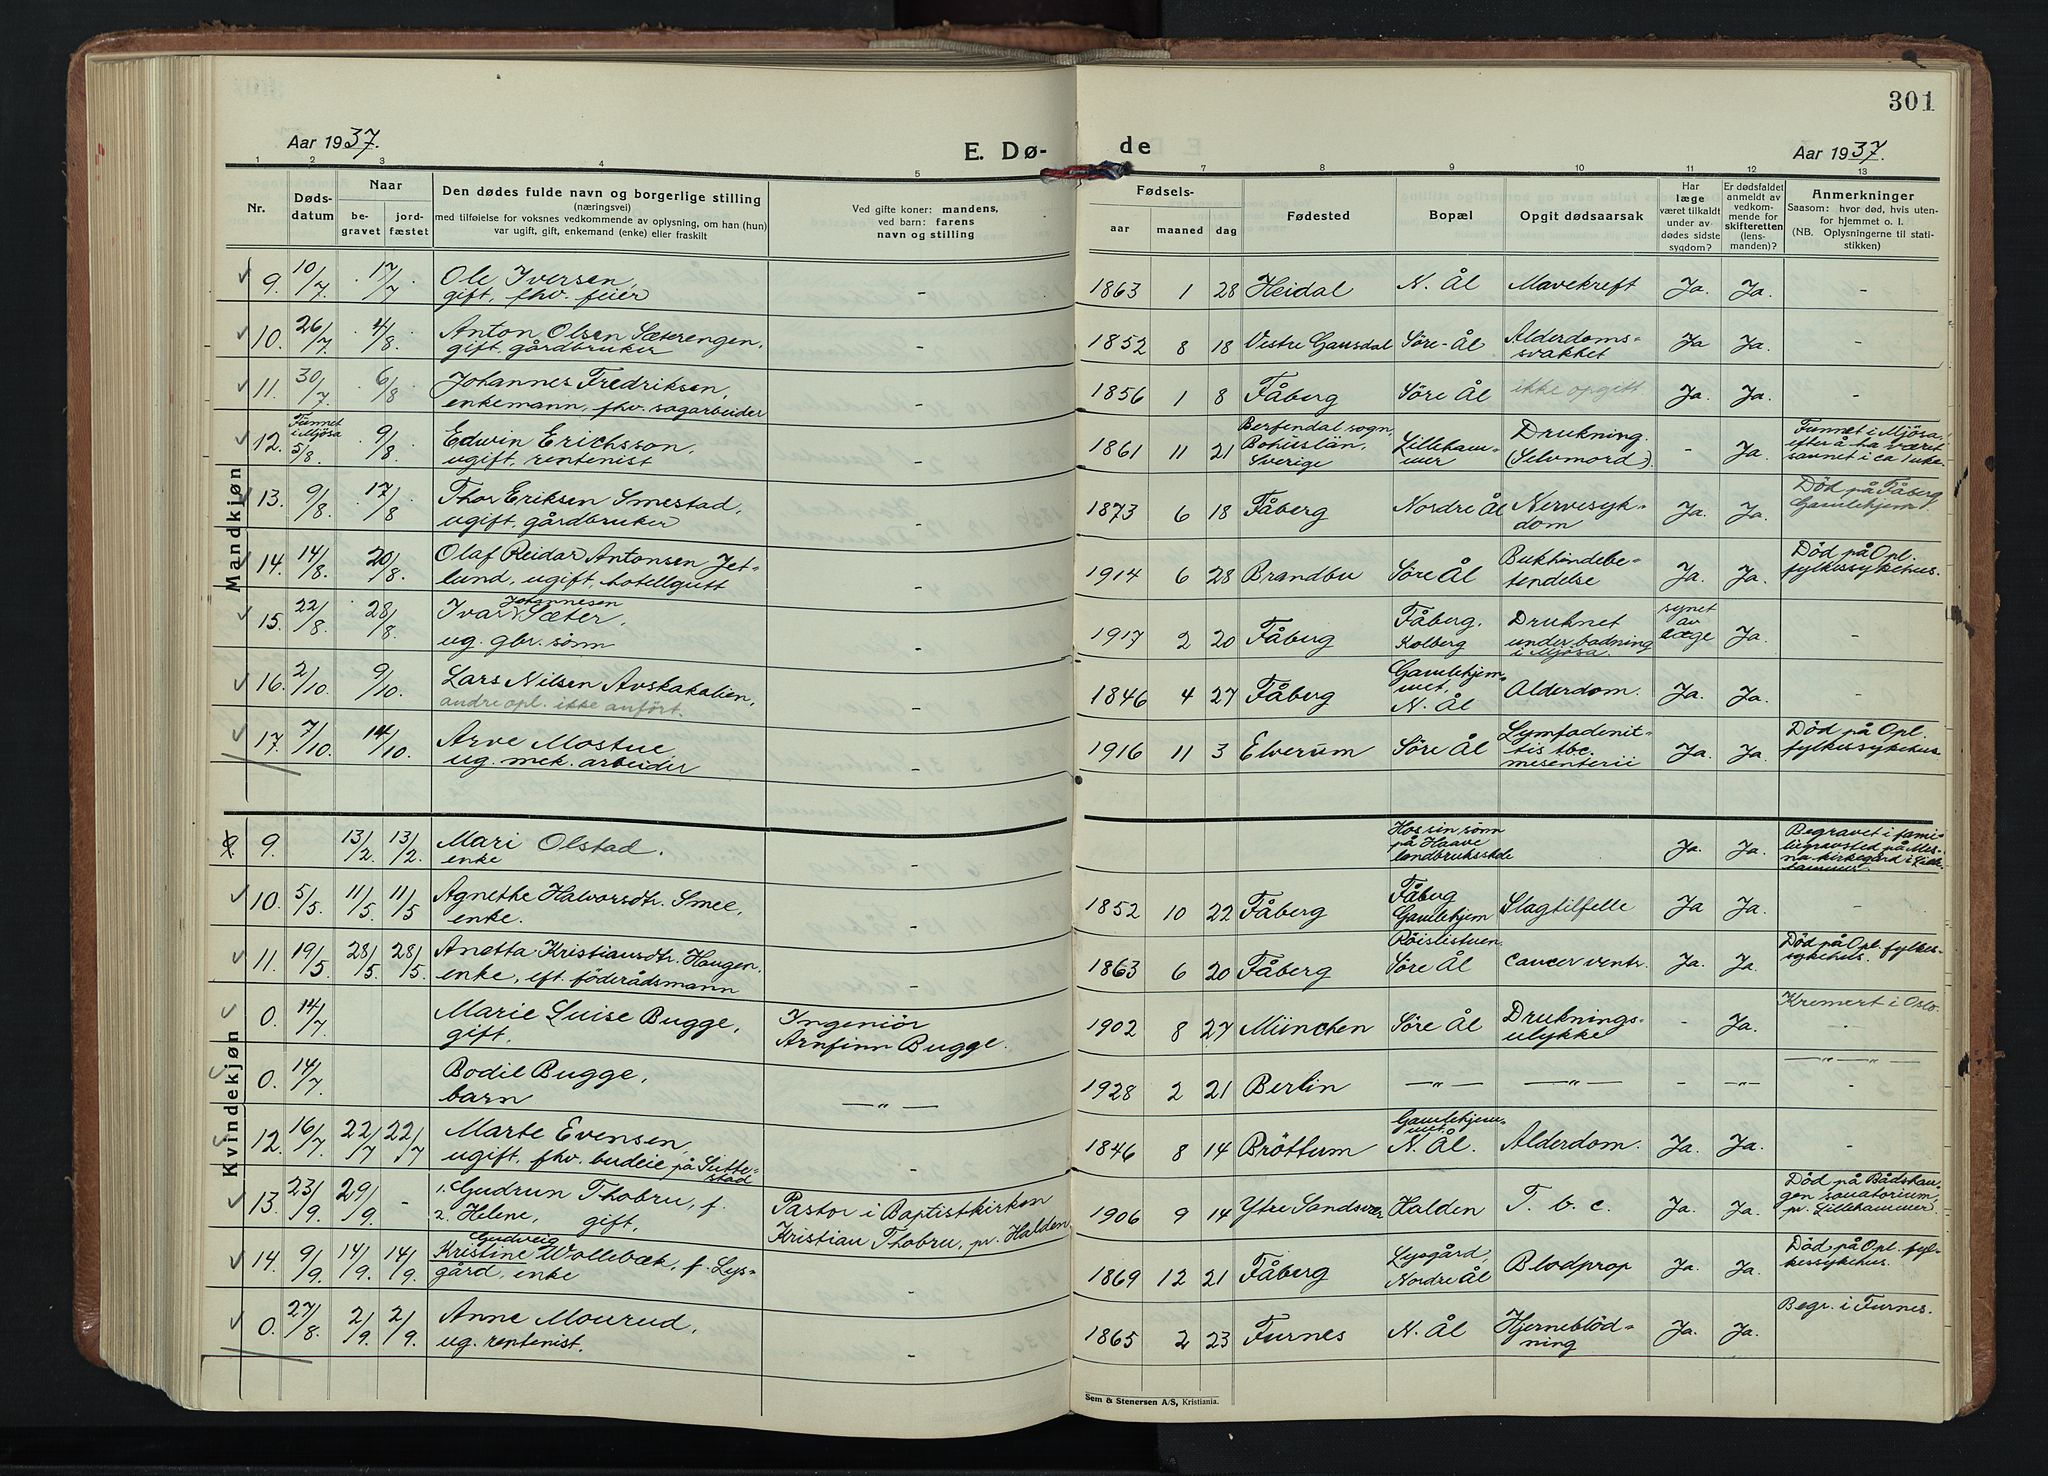 301
Aar 1937.
E. Dø-
de
Aar 1937.
1 2 3 4 5 7 8 9 10 11 12 13
Nr.
Døds-
datum
Naar
be-
gravet
jord-
fæstet
Den dødes fulde navn og borgerlige stilling
(næringsvei)
med tilføielse for voksnes vedkommende av oplysning, om han (hun)
var ugift, gift, enkemand (enke) eller fraskilt
Ved gifte koner: mandens,
ved barn: farens
navn og stilling
Fødsels-
aar maaned dag
Fødested
Bopæl
Opgit dødsaarsak
Har
læge
været tilkaldt
under av-
dødes sidste
sygdom?
Er dødsfaldet
anmeldt av
vedkom-
mende for
skifteretten
(lens-
manden)?
Anmerkninger
Saasom: hvor død, hvis uten-
for hjemmet o. l.
(NB. Oplysningerne til stati-
stikken)
Mandkjøn
9. 10/7 17/7 Ole Iversen, - 1863 1 28 Heidal N. Ål Mavekreft Ja. Ja. -
gift, fhv. feier
10. 26/7 4/8. Anton Olsen Sæterengen, - 1852 8 18 Vestre Gausdal Söre-Ål Alderdoms- Ja Ja. -
gift, gårdbruker svakket
11. 30/7 6/8 Johannes Fredriksen, - 1856 1 8 Fåberg Söre Ål ikke opgitt Ja. Ja. -
enkemann, fhv. sagarbeider
12. Funnet i Mjösa 5/8 9/8 Edwin Erichsson, - 1861 11 21 Berfendal sogn, Lilleham- Drukning. - Ja. Funnet i Mjösa,
ugift, rentenist Bohuslän, mer (Selvmord) efter å ha været
Sverige savnet i ca 1 uke.
13. 9/8. 17/8 Thor Eriksen Smestad, - 1873 6 18 Fåberg Nordre Ål Nervesyk- Ja. Ja. Död på Fåberg
ugift, gårdbruker dom Gamlehjem
14. 14/8. 20/8. Olaf Reidar Antonsen Jet- - 1914 6 28 Brandbu Söre Ål Bukhindebe- Ja. Ja. Död på Opl.
lund, ugift hotellgutt tendelse fylkessykehus.
15. 22/8. 28/8. Ivar Johannesen Sæter, - 1917 2 20 Fåberg Fåberg, Druknet synet Ja. -
ug. gbr. sönn Kolberg under badning av
i Mjösa. læge
16. 2/10 9/10. Lars Nilsen Avskakalien, - 1846 4 27 Fåberg Gamlehjem- Alderdom. Ja. Ja. -
andre opl. ikke anfört. met,
N. Ål
17. 7/10. 14/10. Arve Mostue - 1916 11 3 Elverum Söre Ål Lymfadenit- Ja. Ja. Död på Opl.
ug. mek. arbeider tis tbc. fylkessykehus.
mesenterii
Kvindekjøn
9. 13/2. 13/2. Mari Olstad. - Hos sin sönn Ja. Ja. Begravet i fami-
enke på Haave liegravsted på Mes-
landbruksskole na-kirkegård i Lille-
hammer.
10. 5/5. 11/5 11/5 Agnethe Halvorsdtr. Smee, - 1852 10 22 Fåberg Fåberg Slagtilfelle Ja Ja. -
enke. Gamlehjem
11. 19/5 28/5 28/5. Anetta Kristiansdtr. Haugen, - 1863 6 20 Fåberg Röislistuen, cancer ventr. Ja. Ja. Död på Opl. fylkes-
enke, eft. föderådsmann Söre Ål sykehus.
0. 14/7. Marie Luise Bugge, Ingeniör 1902 8 27 München Söre Ål Druknings- - Ja. Kremert i Oslo.
gift. Arnfinn Bugge. ulykke -
0. 14/7 Bodil Bugge, —"— 1928 2 21 Berlin —"— —"— - —"— —"—"—
barn -
12. 16/7. 22/7 22/7 Marte Evensen, - 1846 8 14 Bröttum Gamlehjem- Alderdom. Ja. Ja. -
ugift, fhv. budeie på Sutte- met,
stad N. Ål.
13. 23/9. 29/9. - 1. Gudrun Thobru, f. Pastor i Baptistkirken 1906 9 14 Ytre Sandsvær Halden T. b. c. Ja. Ja. Död på Bådshau-
2. Helene, gift, Kristian Thobru, pr. Halden. gen sanatorium,
pr. Lillehammer.
14. 9/9. 14/9. 14/9. Kristine Gudveig Wollebæk, f. Lys- - 1869 12 21 Fåberg Lysgård, Blodprop Ja. Ja. Död på Opl. fyl-
gård, enke Nordre Ål kessykehus.
0. 27/8. 2/9. 2/9. Anne Mourud, - 1865 2 23 Furnes N. Ål Hjerneblöd- Ja. Ja. Begr. i Furnes.
ug. rentenist. ning -
Sem & Stenersen A/S, Kristiania.